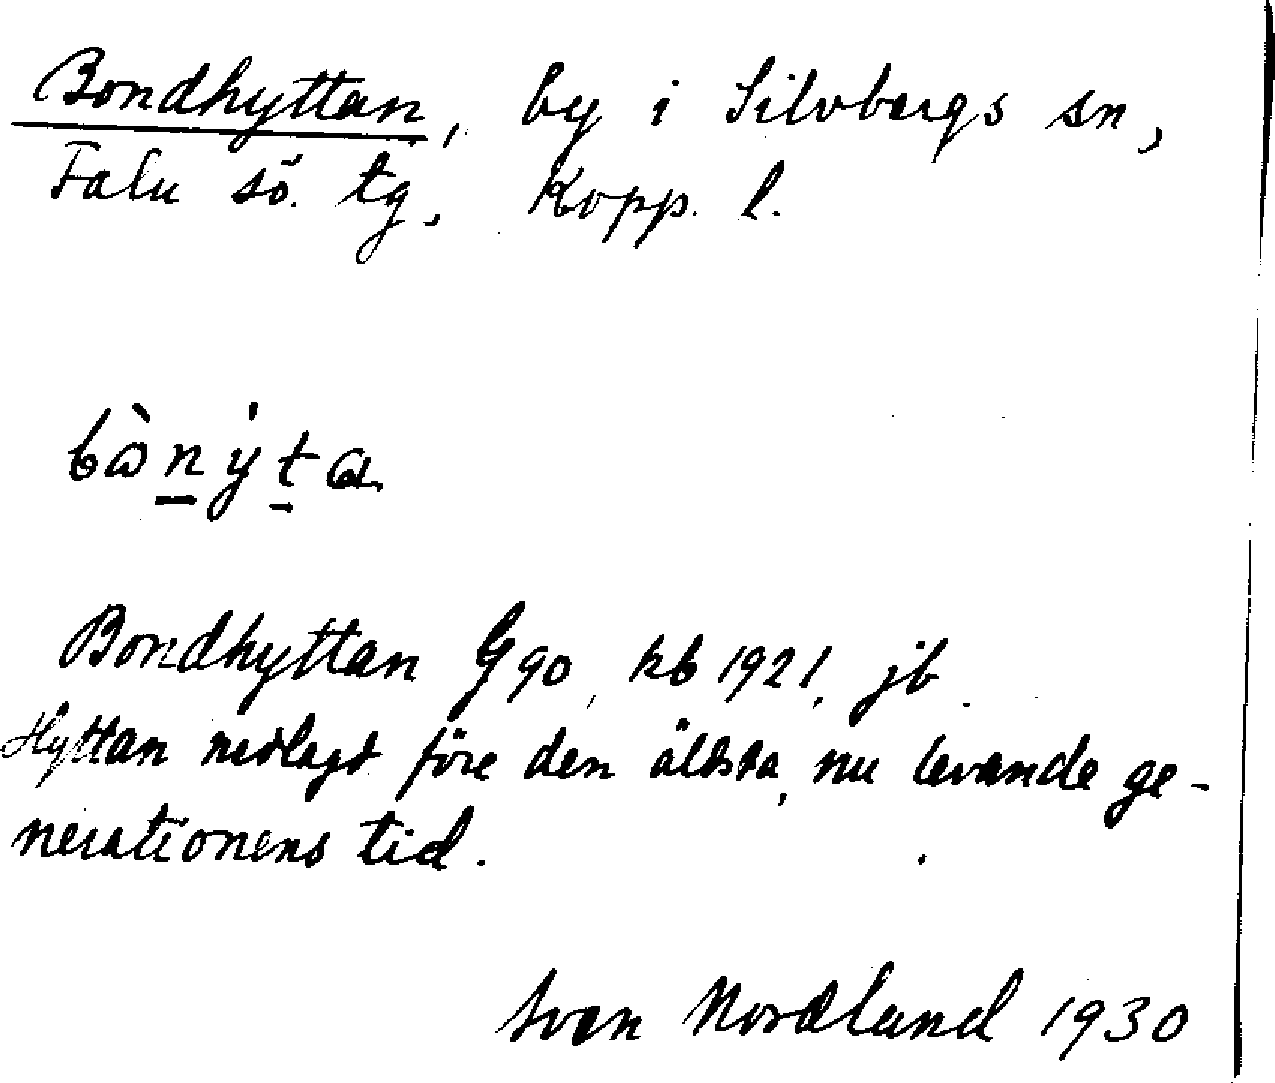 Bondhyttan, by i Silvbergs sn,
Falu sö. tg, Kopp. l.
bὼnẏta
Bondhyttan G 90, kb 1921, jb.
Hyttan nedlagd före den äldsta, nu levande ge-
nerationens tid.
Sven Nordlund 1930